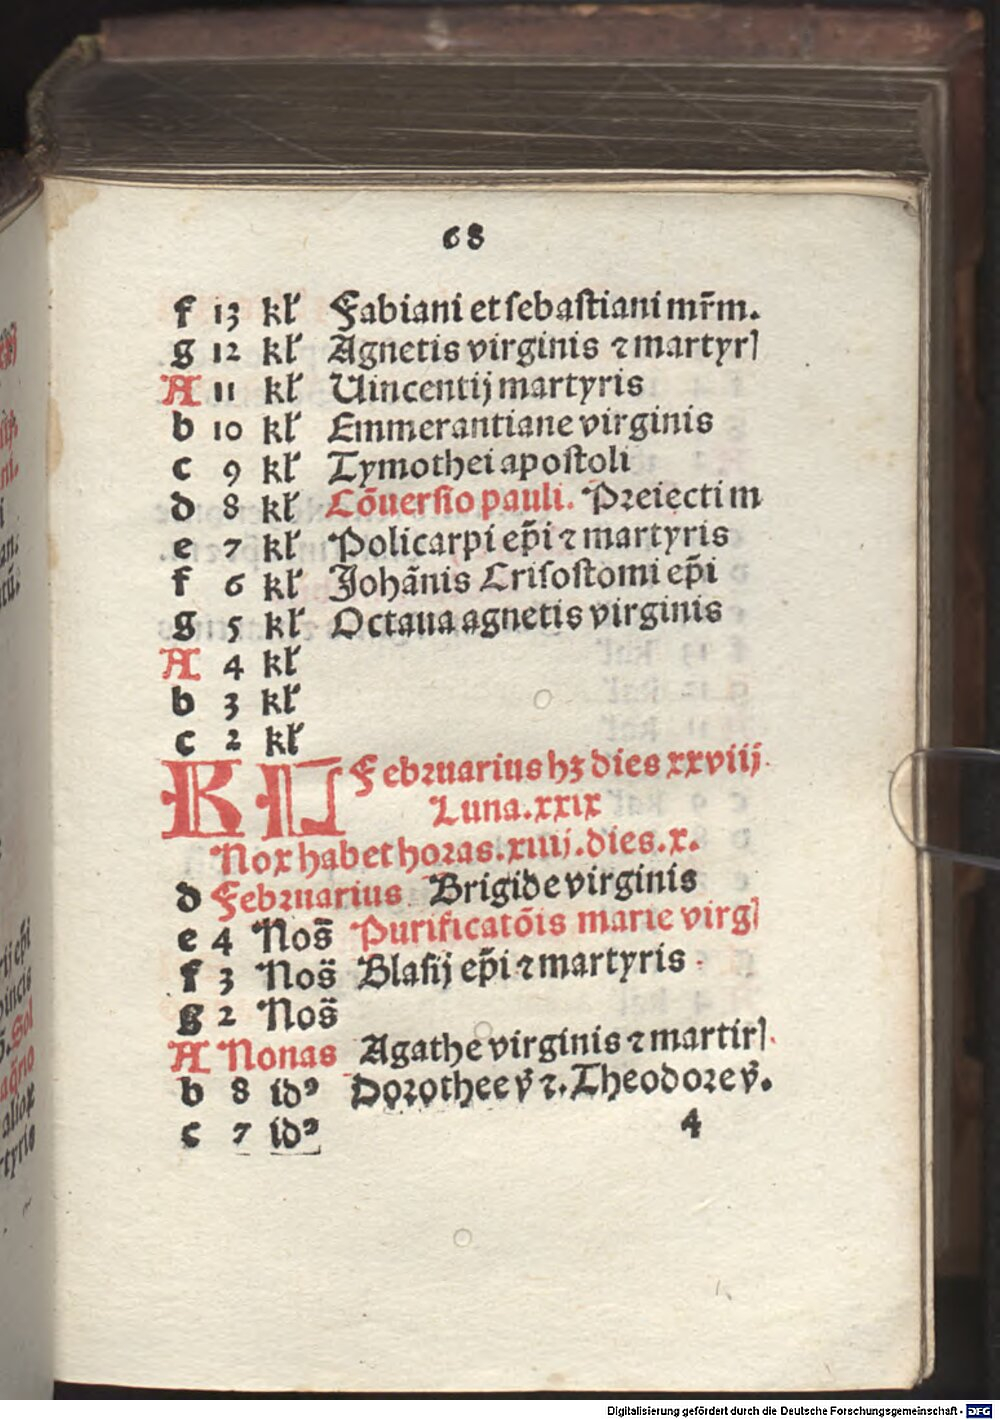 68
f 13 kł Fabiani et sebastiani mr̄m.
g 12 kł Agnetis virginis ⁊ martyrꝭ
A 11 kł Uincentij martyris
b 10 kł Emmerantiane virginis
c 9 kł Tymothei apostoli
d 8 kł Cōuersio pauli. Preiecti m
e 7 kł Policarpi ep̄i ⁊ martyris
f 6 kł Johānis Crisostomi ep̄i
g 5 kł Octaua agnetis virginis
A 4 kł
b 3 kł
c 2 kł
KL Februarius hꝫ dies xxviij.
Luna. xxix
Nox habet horas. xiiij. dies. x.
d Februarius Brigide virginis
e 4 Nōs Purificatōis marie virgꝭ
f 3 Nōs Blasij ep̄i ⁊ martyris
g 2 Nōs
A Nonas Agathe virginis ⁊ martirꝭ.
b 8 idꝰ Dorothee v̄ ⁊. Theodore v̄.
c 7 idꝰ
4
Digitalisierung gefördert durch die Deutsche Forschungsgemeinschaft - DFG